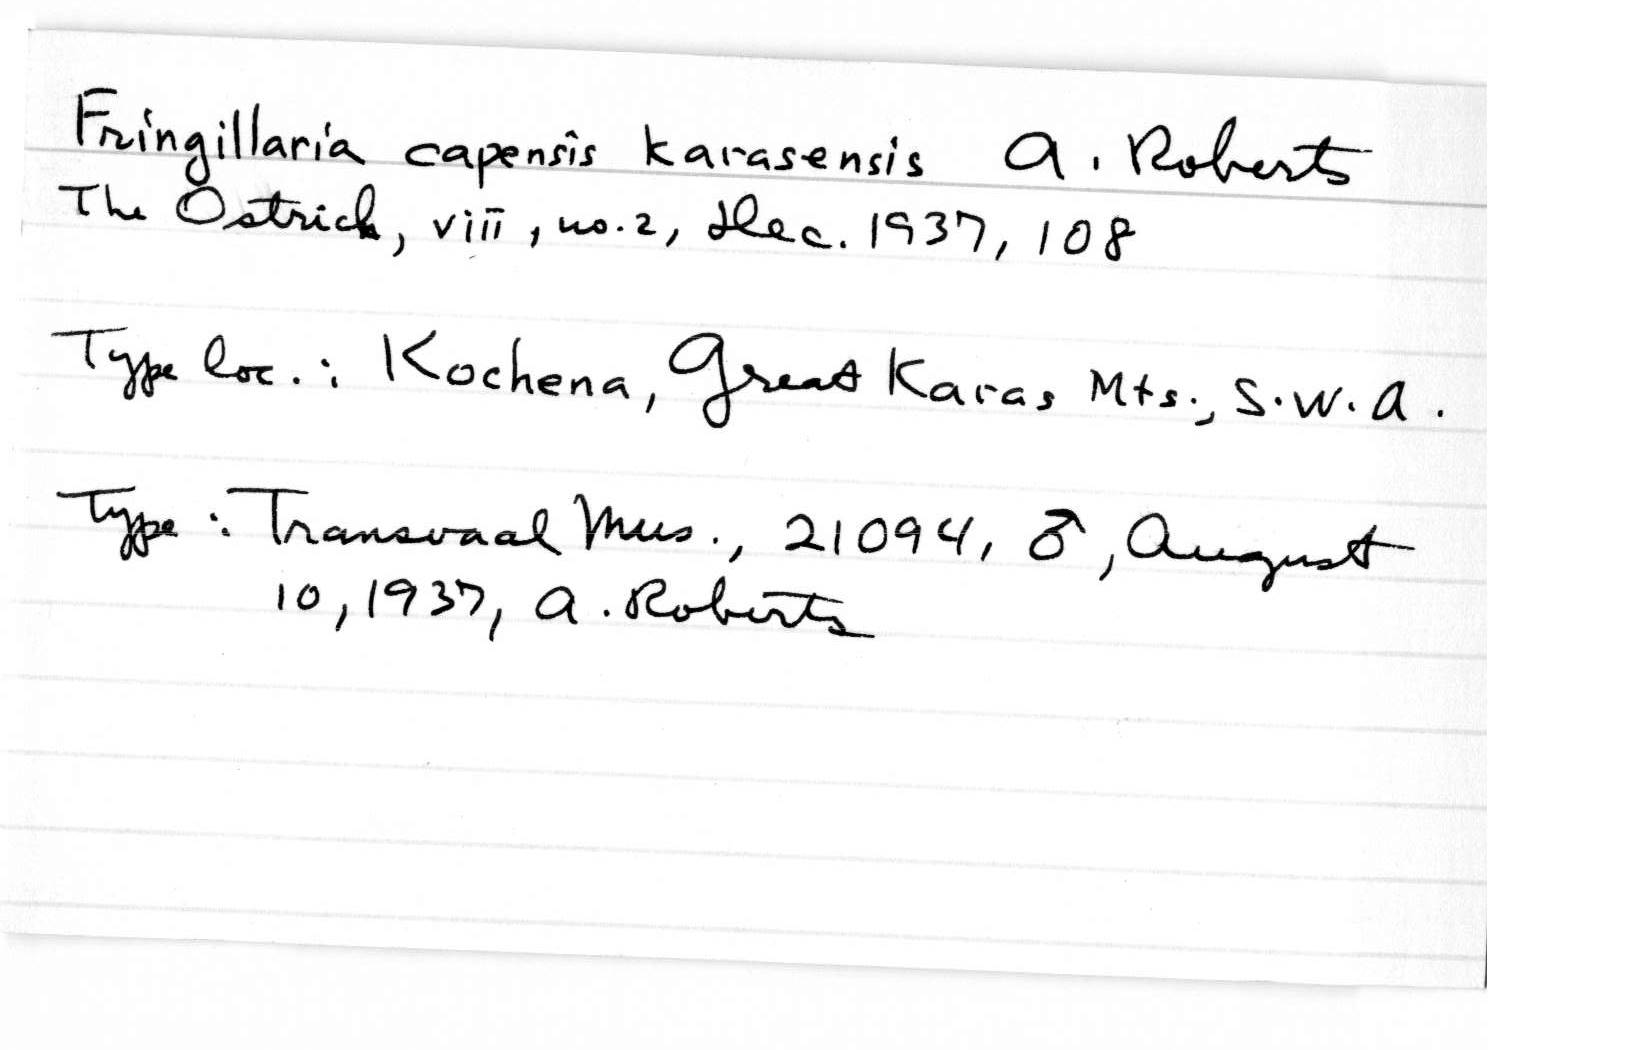 Fringillaria capensis karasensis A. Roberts
The Ostrich, viii, no. 2, Dec. 1937, 108
Type loc.: Kochena, Great Karas Mts., S.W.A.
Type: Transvaal Mus., 21094, ♂, August
10, 1937, A. Roberts